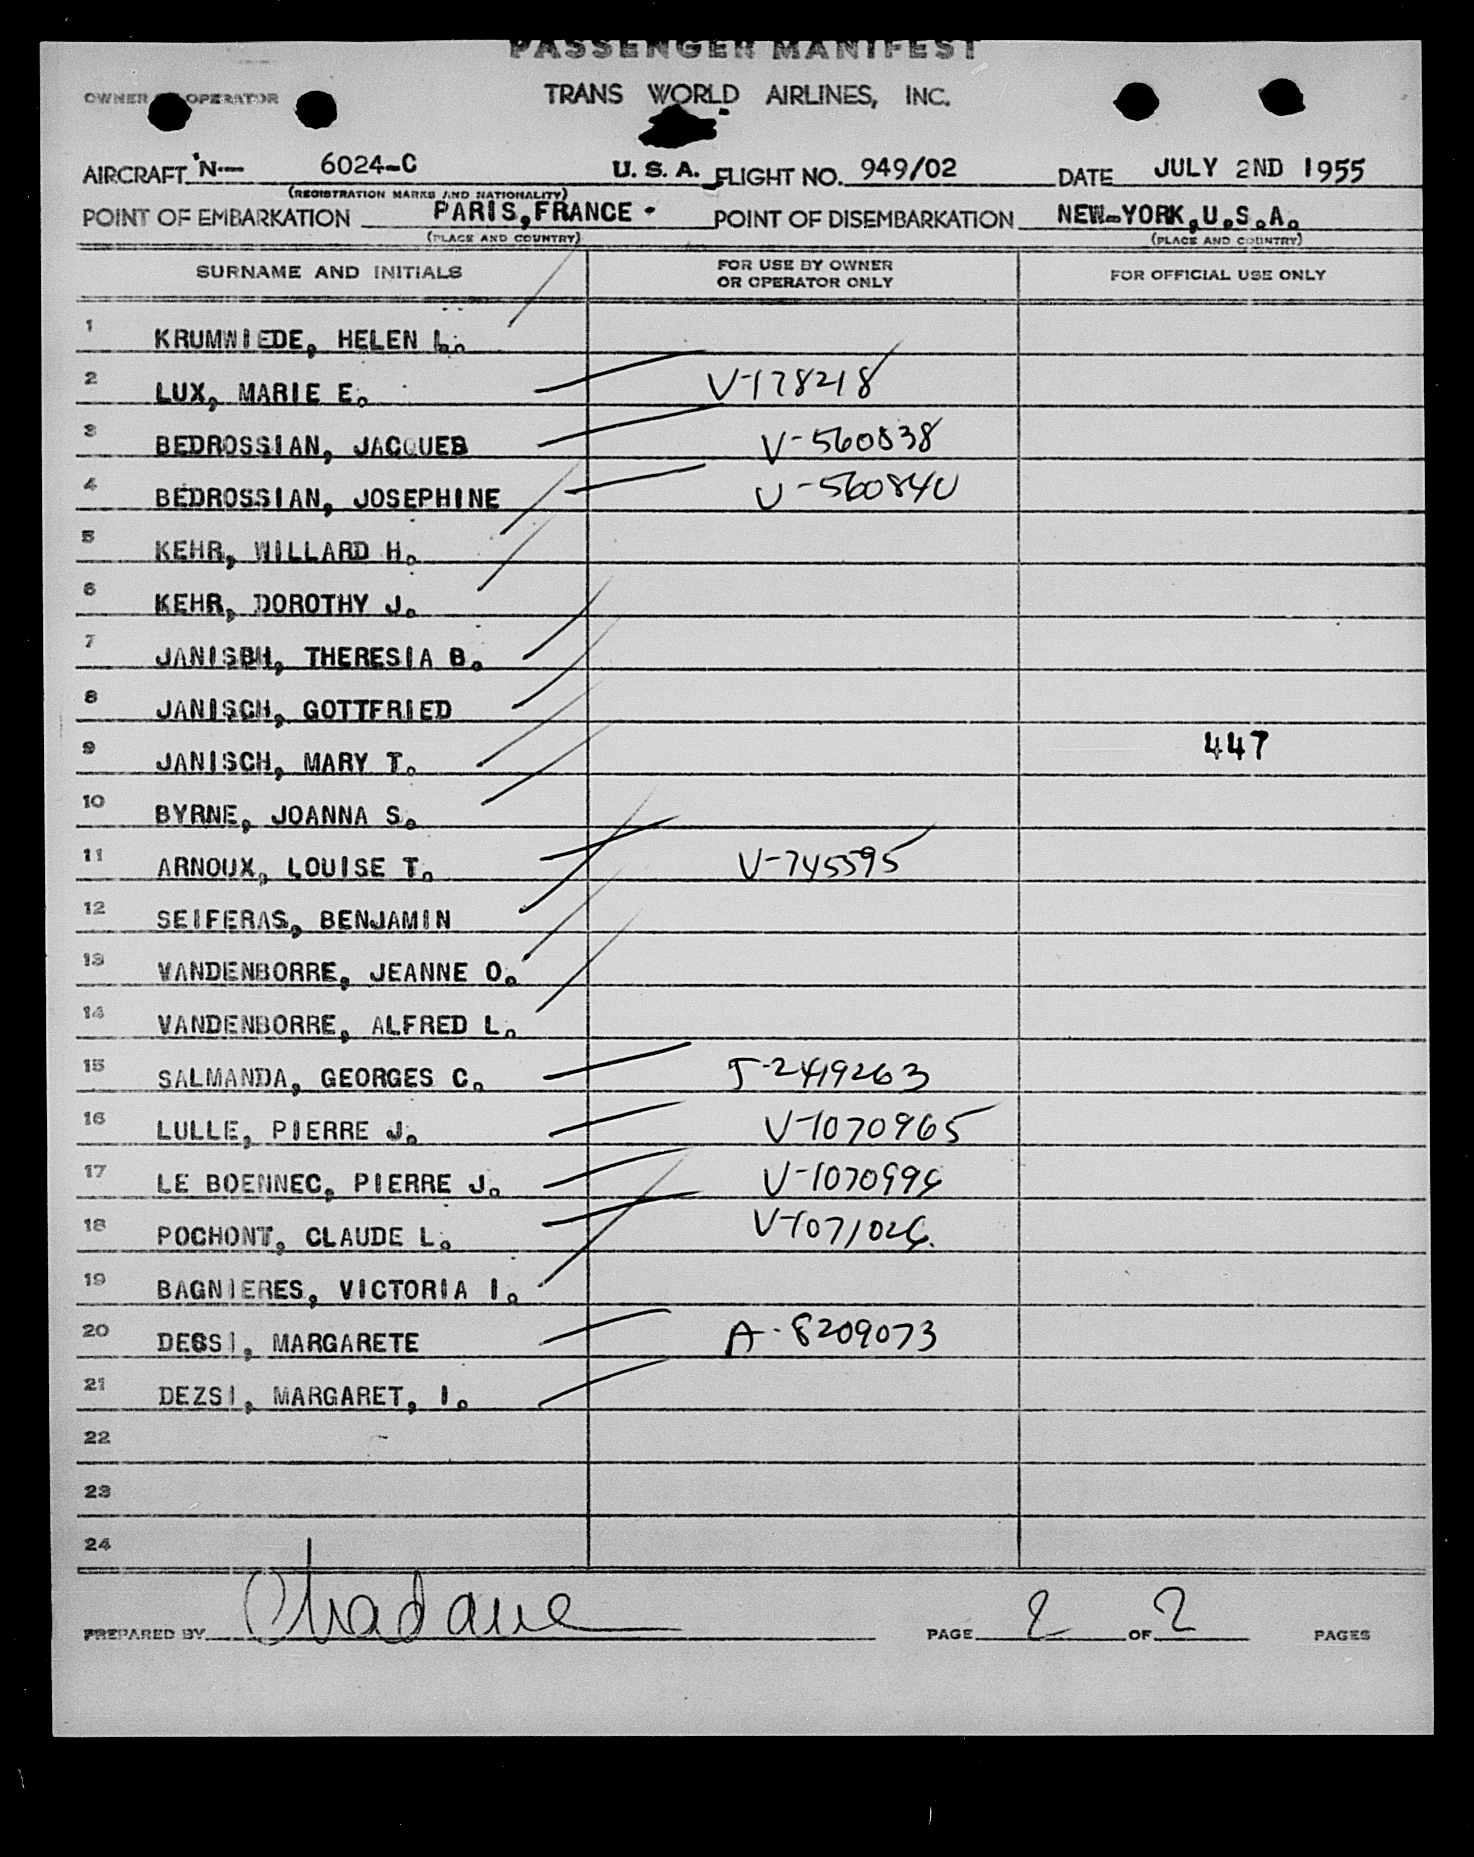 PASSENGER MANIFEST
OWNER OR OPERATOR TRANS WORLD AIRLINES, INC.
AIRCRAFT N-- 6024-C U.S.A. FLIGHT NO. 949/02 DATE JULY 2ND 1955
(REGISTRATION MARKS AND NATIONALITY)
POINT OF EMBARKATION PARIS,FRANCE. POINT OF DISEMBARKATION NEW-YORK,U.S.A.
(PLACE AND COUNTRY) (PLACE AND COUNTRY)
SURNAME AND INITIALS FOR USE BY OWNER OR OPERATOR ONLY FOR OFFICIAL USE ONLY
1 KRUMWIEDE, HELEN L.
2 LUX, MARIE E. V-178218
3 BEDROSSIAN, JACQUES V-560838
4 BEDROSSIAN, JOSEPHINE V-560840
5 KEHR, WILLARD H.
6 KEHR, DOROTHY J.
7 JANISBH, THERESIA B.
8 JANISCH, GOTTFRIED
9 JANISCH, MARY T. 447
10 BYRNE, JOANNA S.
11 ARNOUX, LOUISE T. V-745595
12 SEIFERAS, BENJAMIN
13 VANDENBORRE, JEANNE O.
14 VANDENBORRE, ALFRED L.
15 SALMANDA, GEORGES C. T-2419263
16 LULLE, PIERRE J. V-1070965
17 LE BOENNEC, PIERRE J.
18 POCHONT, CLAUDE L.
19 BAGNIERES, VICTORIA I.
20 DESSI, MARGARETE A-8209073
21 DEZSI, MARGARET, I.
22
23
24
PREPARED BY PAGE 2 OF 2 PAGES